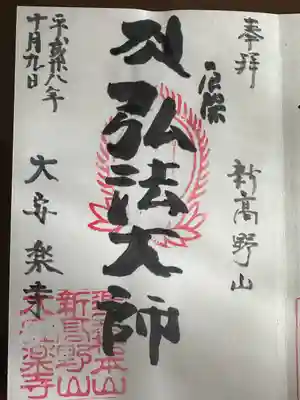 奉拝
新高野山
厄除
弘法大師
平成廿八年
十月九日
大安楽寺
新高野山
大安楽寺